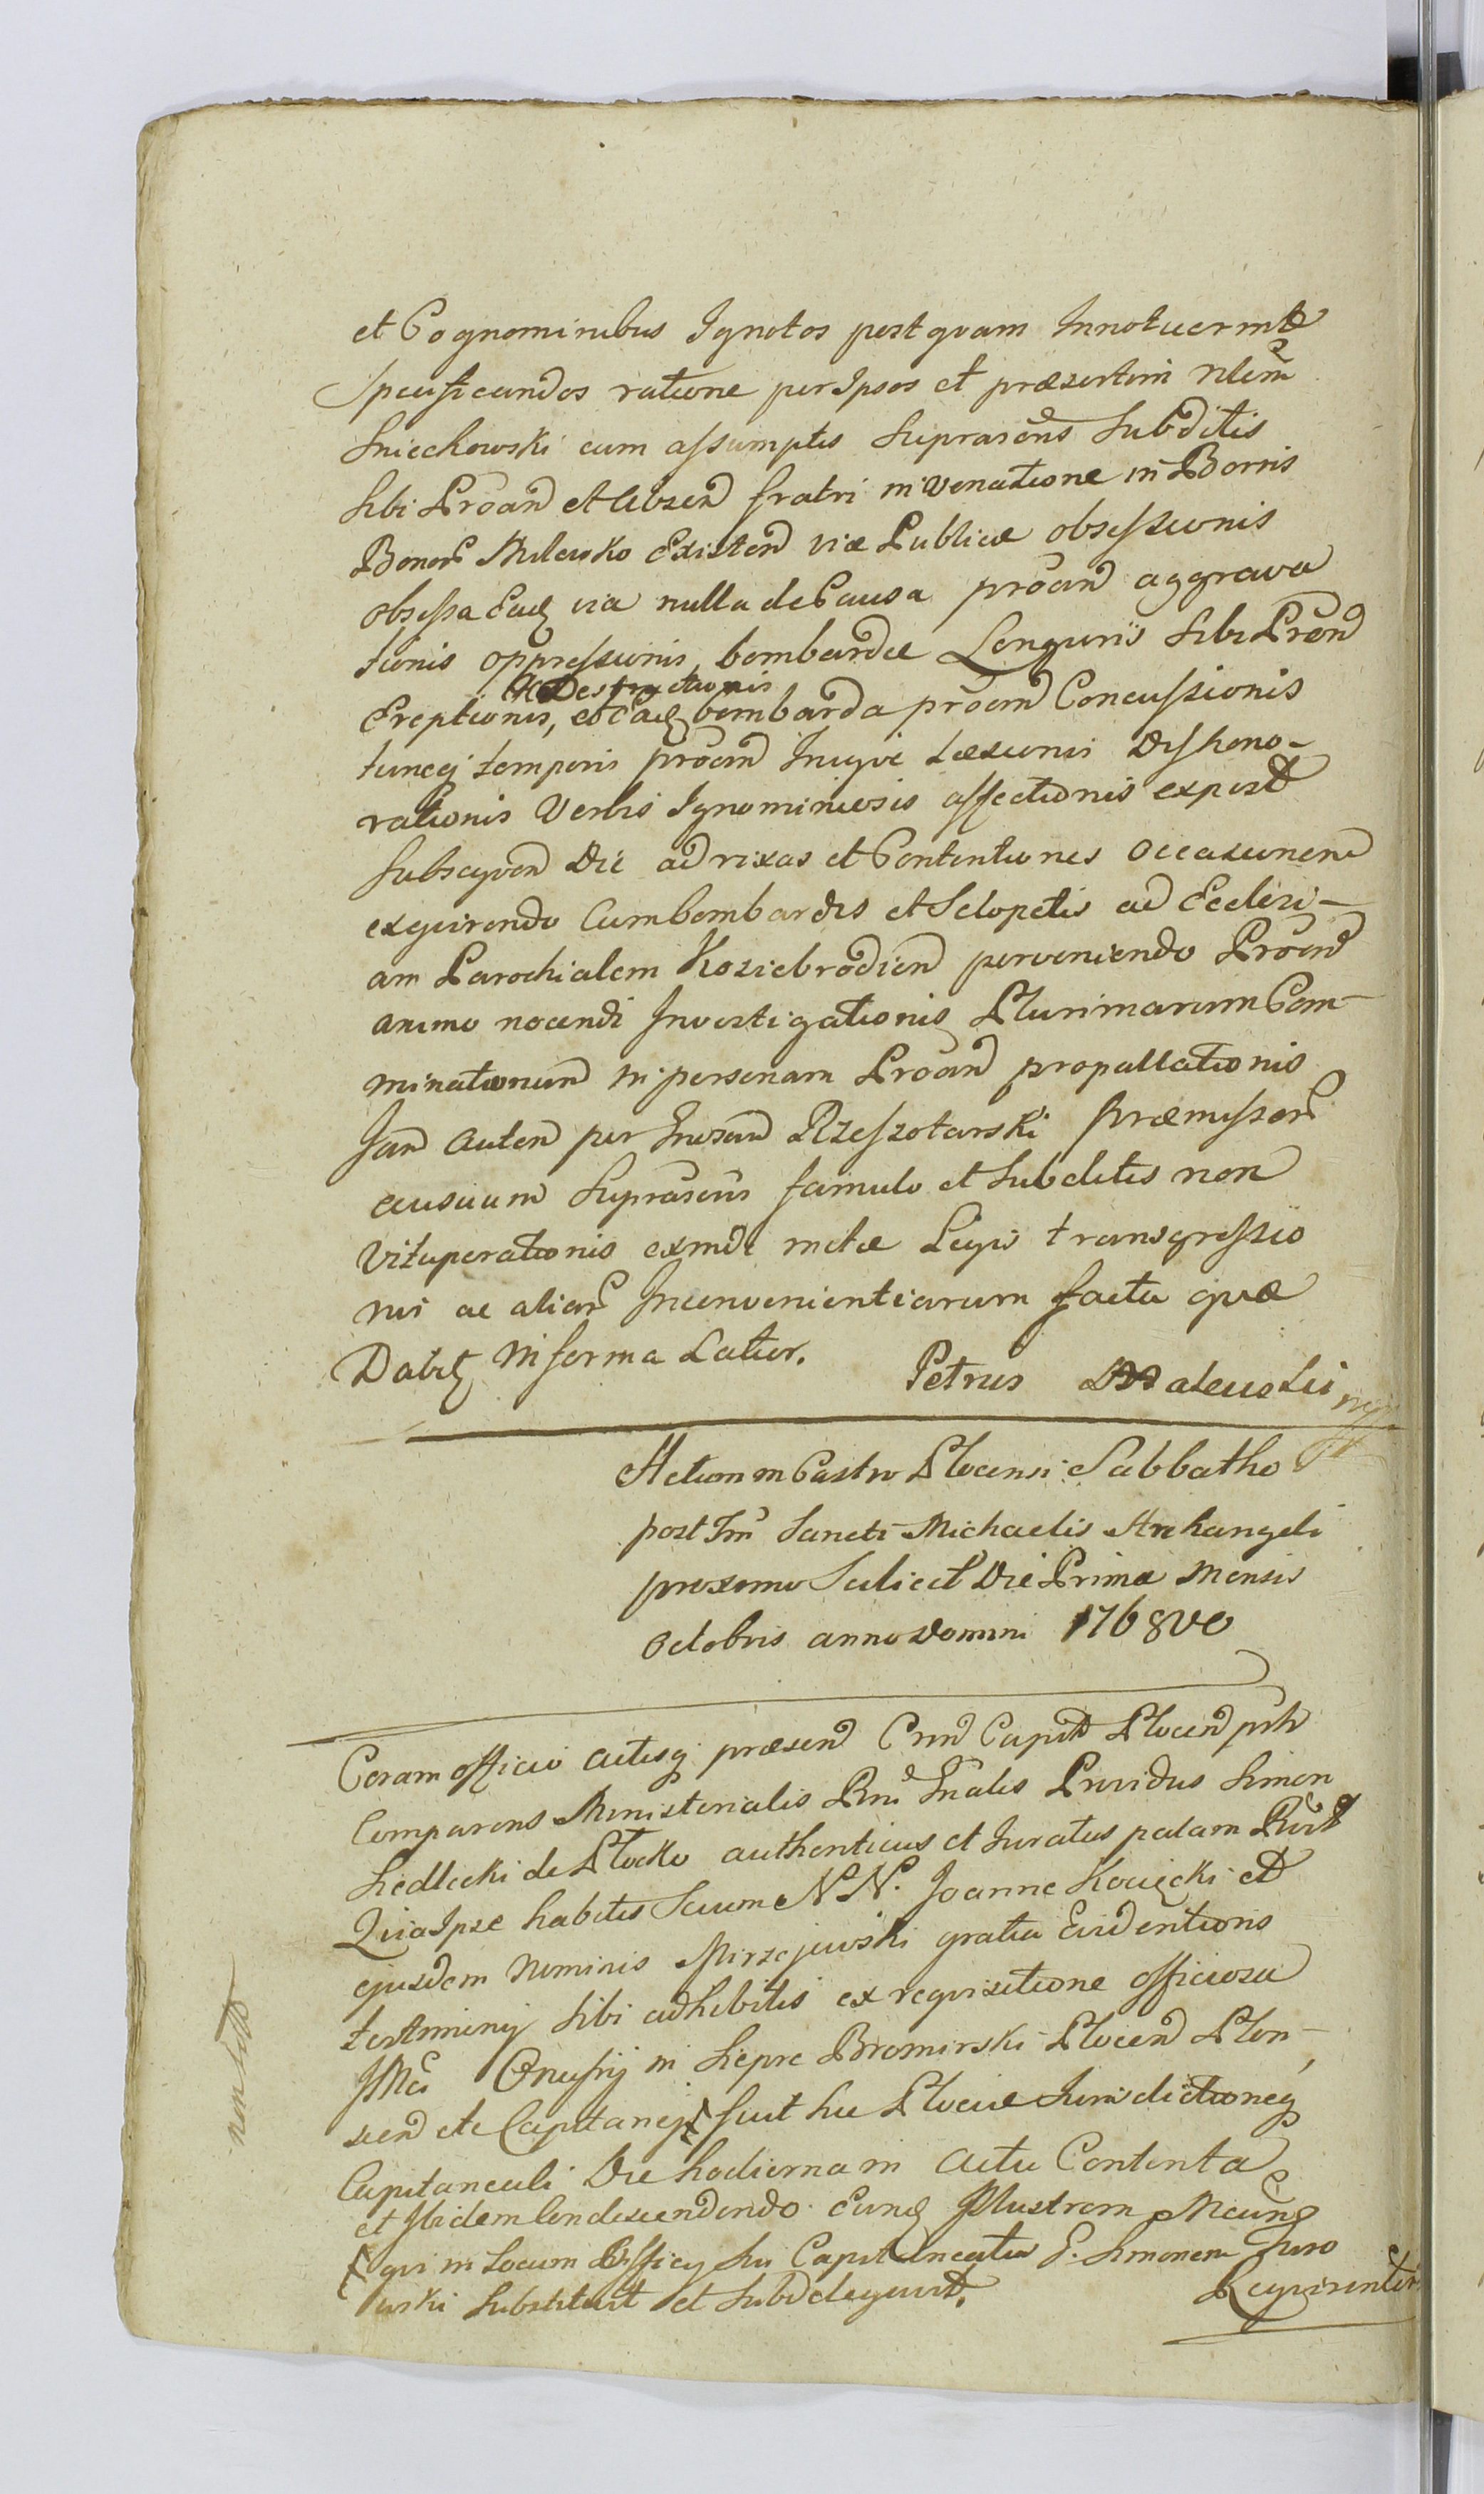 et Cognominibus Ignotos postquam Innotuerint
specificandos ratione per Ipsos et præsertim
Sniechowski cum assumptis Suprascris Subditis
Sibi Proan et Absen fratri in venatione in Borris
Bonor Milewko Existen viæ Publicæ obsessionis
obsessa Eaq via nulla de Causa proan aggrava
tionis oppressionis, bombardæ Longuriis Sibi Proan
ac Destructionis
Ereptionis, et Eaq bombarda proan Concussionis
tuncq temporis proan Inique Læsionis Dishono-
rationis Verbis Ignominiosis affectionis expost
subsequen Die ad rixas et Contentiones occasionem
exquirendo Cum bombardis et Sclopetis ad Eccleſi-
am Parochialem Koziebrodien perveniendo Proan
animo nocendi Investigationis Plurimarum Com-
minationum in personam Proan propallationis
Jam autem per Rzeszotarski præmissor
ausuum Suprascris famulo et Subditis non
vituperationis exinde metæ Legis transgressio
nis ac aliar Inconvenientiarum facta quæ
Dabit in forma Latior. Petrus
Actum in Castro Plocensi Sabbatho
post Fm Sancti Michaelis Archangeli
proximo Scilicet Die Prima Mensis
Octobris anno Domini 1768vo
Coram officio actisq præsen Crm Capit Plocen psh
Comparens Ministerialis Rni Gnalis Providus Simon
Siedlecki de Plocko authenticus et Juratus palam
Quia Ipse habitis Secum N N. Joanne Kowięcki et
ejusdem Nominis Mirzejewski gratia Evidentioris
testimonij Sibi adhibitis ex requisitione officiosa
Onufrij in Siepre Bromirski Plocen Plon-
scen etc Capitanej fuit hic Plociæ Jurisdictioneq
Capitaneali Die hodierna in actu Contenta
et Ibidem Condescendendo Eunq Illustrem
qui in Locum Officij hu Capitanealis G. Simonem Juro
wski Substituit et Subdelegavit.
Requirenter
non